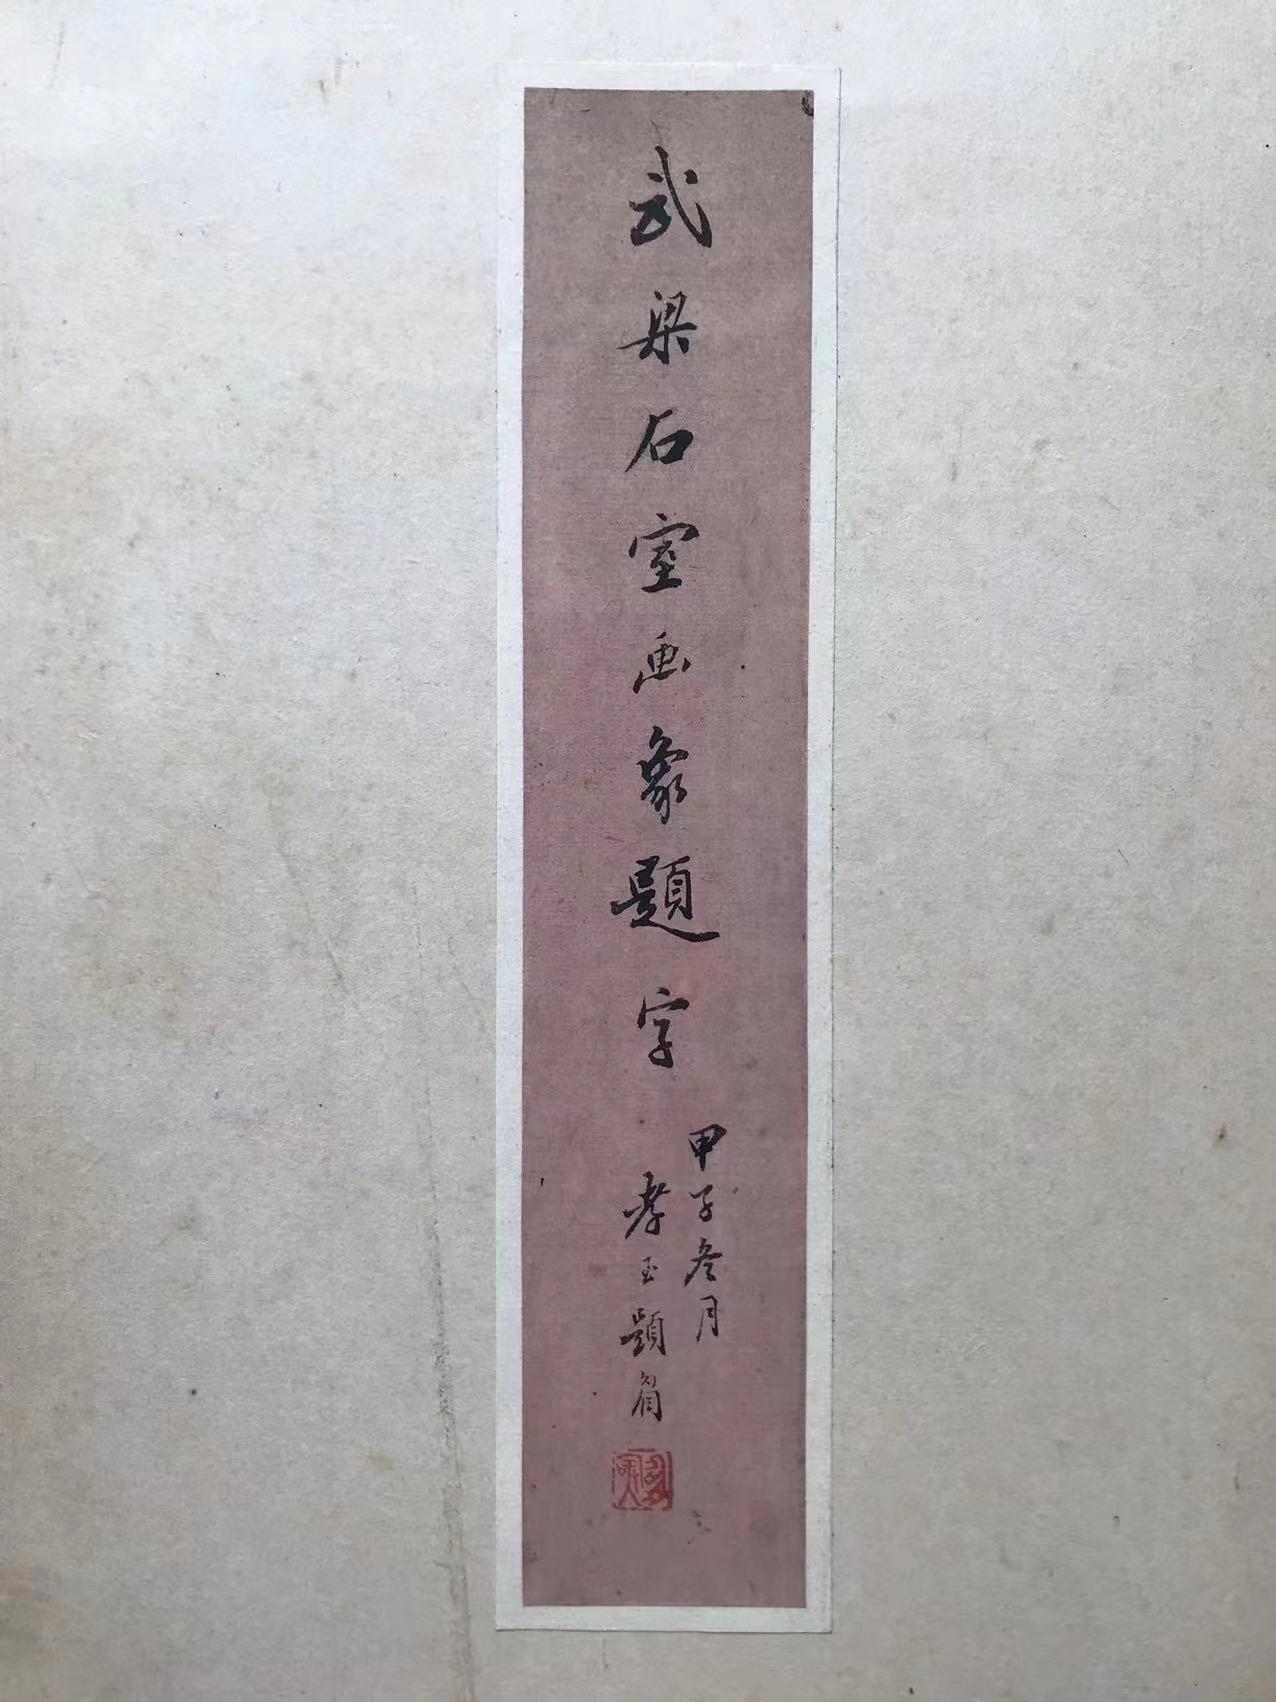 武梁石室画象題字
甲子叁月
孝玉題眉